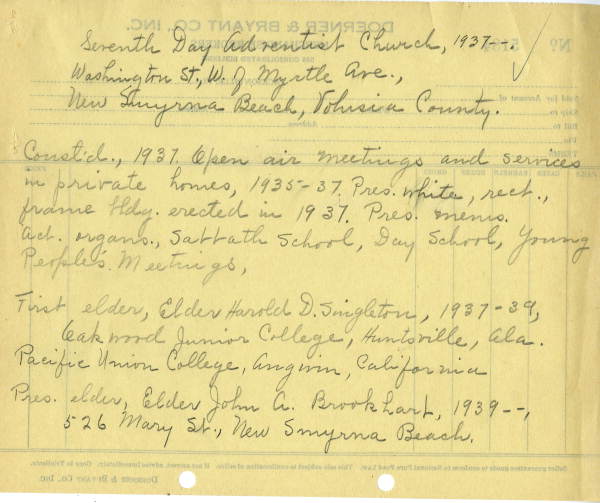 Seventh Day Adventist Church, 1937--.
Washington St., W. of Myrtle Ave.,
New Smyrna Beach, Volusia County.
Const'd., 1937. Open air meetings and services
in private homes, 1935-37. Pres. white, rect.,
frame bldg. erected in 1937. Pres. mems.
Act. organs., Sabbath School, Day School, Young
People's Meetings,
First elder, Elder Harold D. Singleton, 1937-39,
Oakwood Junior College, Huntsville, Ala.
Pacific Union College, Angwin, California
Pres. elder, Elder John A. Brookhart, 1939--,
526 Mary St., New Smyrna Beach.